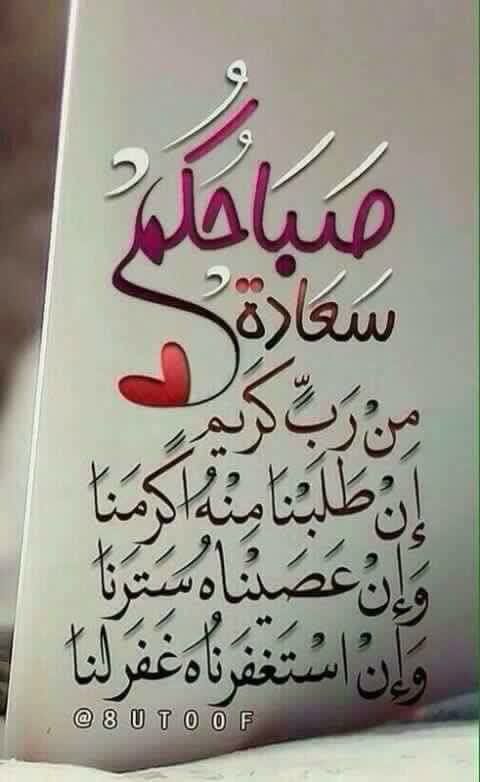 صَبَاحُكُمْ
سَعَادَةٌ
مِنْ رَبٍّ كَرِيمٍ
إِنْ طَلَبْنَا مِنْهُ اكْرَمَنَا
وَإِنْ عَصَيْنَاهُ سَتَرَنَا
وَإِنْ اسْتَغْفَرْنَاهُ غَفَرَ لَنَا
@8UTOOF